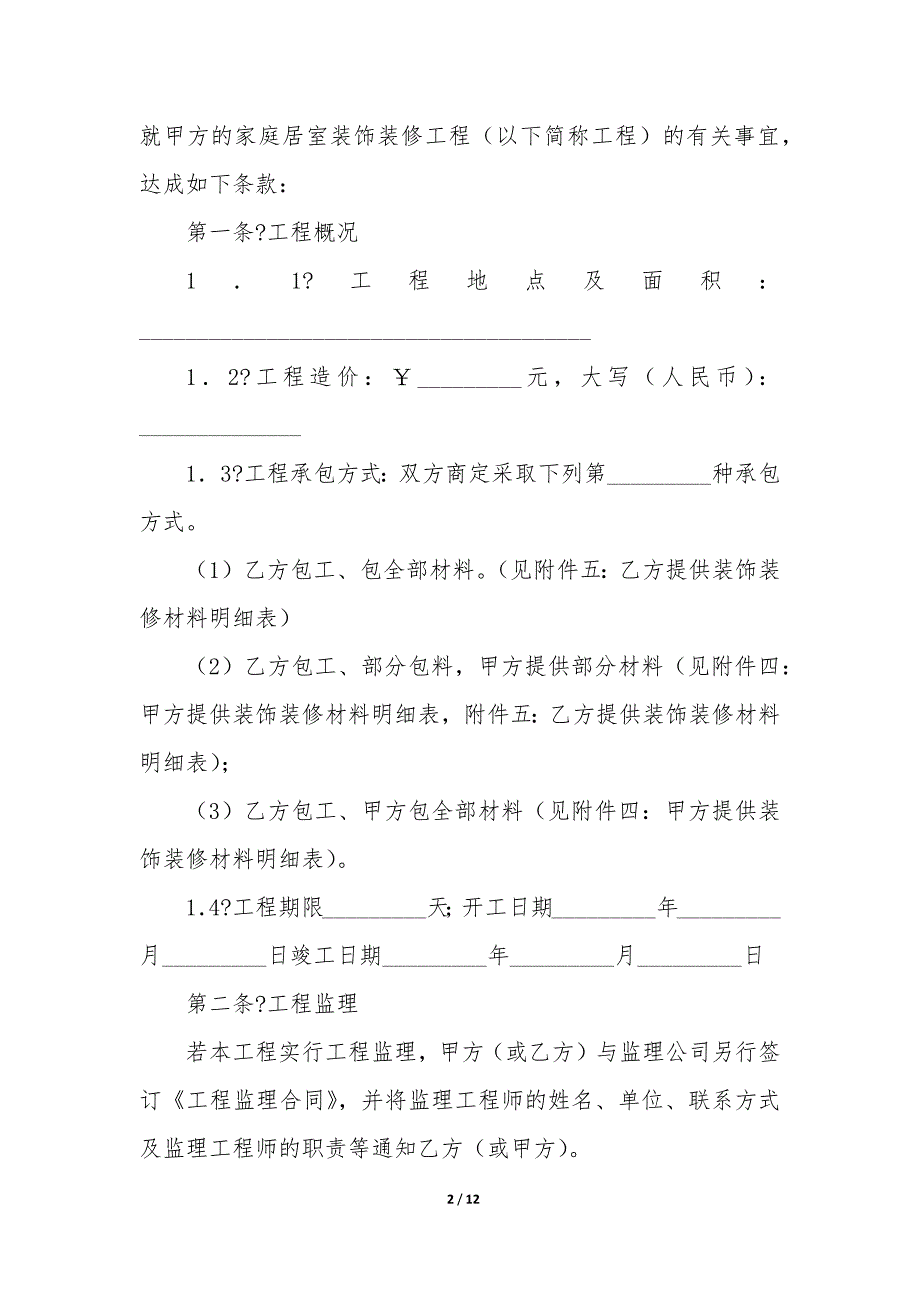 就甲方的家庭居室装饰装修工程（以下简称工程）的有关事宜，
达成如下条款：
第一条?工程概况
1．1?工程地点及面积：
_______________________________________
1．2?工程造价：￥_________元，大写（人民币）：
______________
1．3?工程承包方式：双方商定采取下列第_________种承包
方式。
（1）乙方包工、包全部材料。（见附件五：乙方提供装饰装
修材料明细表）
（2）乙方包工、部分包料，甲方提供部分材料（见附件四：
甲方提供装饰装修材料明细表，附件五：乙方提供装饰装修材料
明细表）；
（3）乙方包工、甲方包全部材料（见附件四：甲方提供装
饰装修材料明细表）。
1.4?工程期限_________天；开工日期_________年_________
月_________日竣工日期_________年_________月_________日
第二条?工程监理
若本工程实行工程监理，甲方（或乙方）与监理公司另行签
订《工程监理合同》，并将监理工程师的姓名、单位、联系方式
及监理工程师的职责等通知乙方（或甲方）。
2 / 12